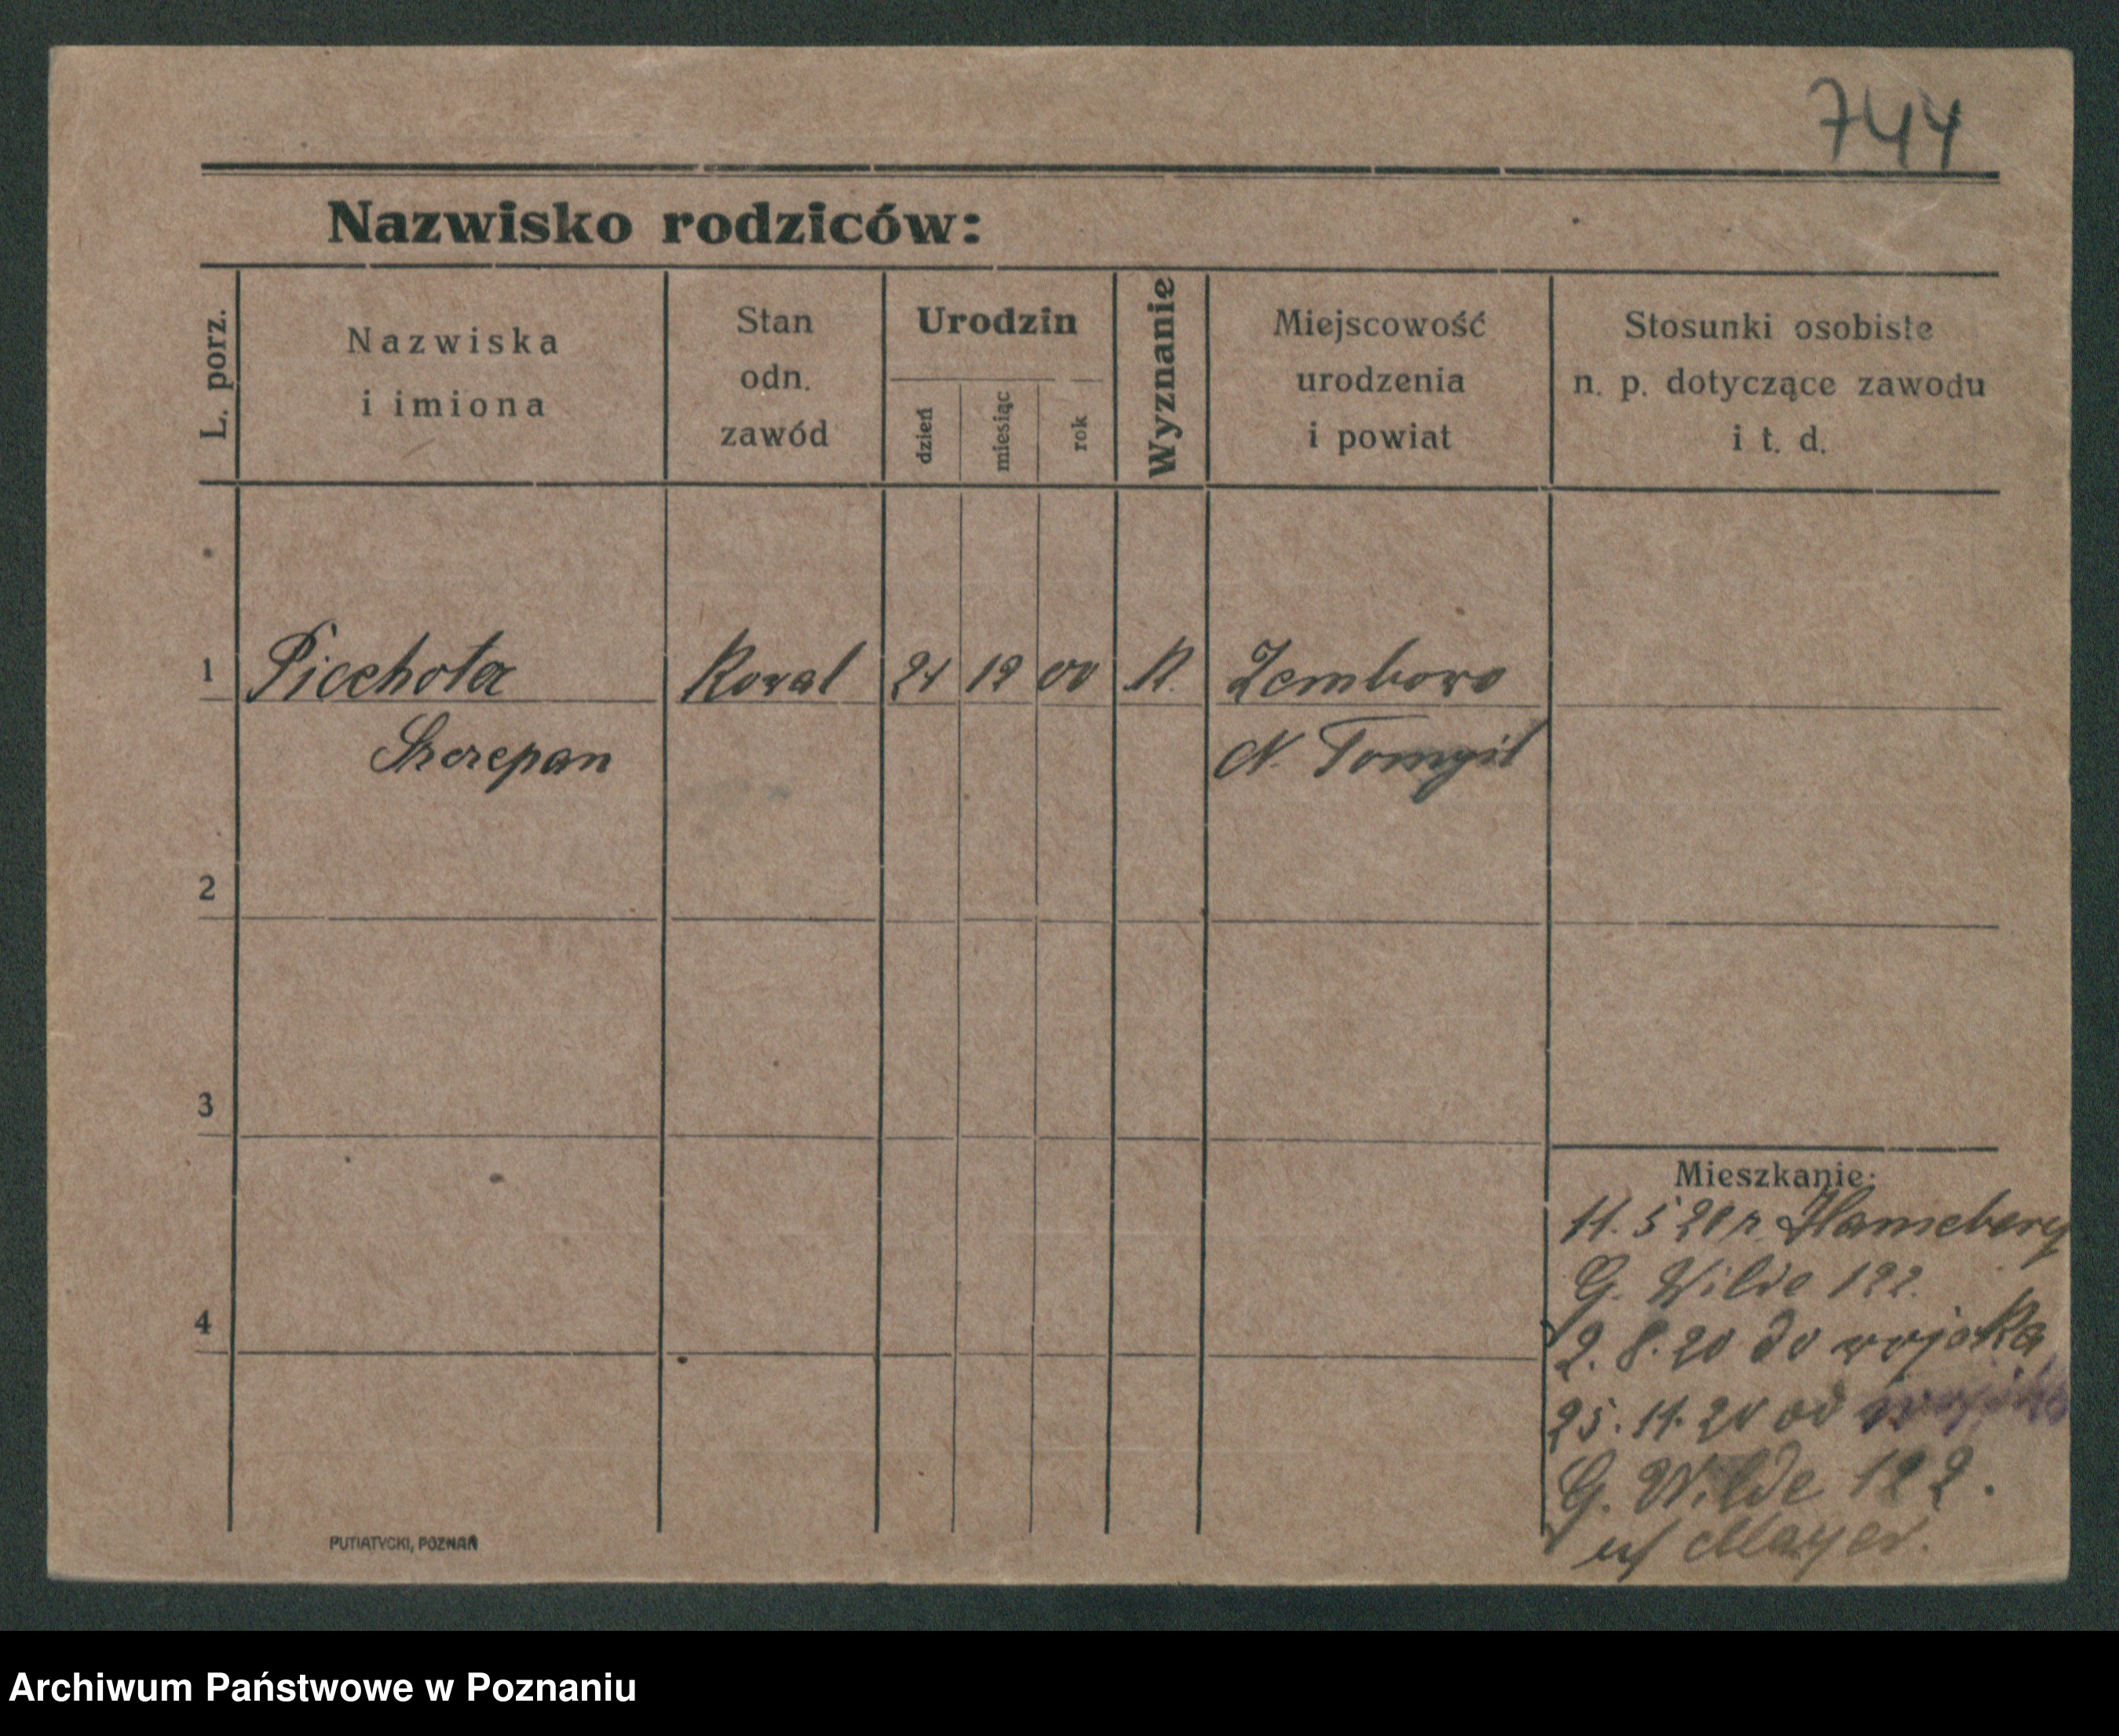 744
Nazwisko rodziców:
L. porz.
Nazwiska
i imiona
Stan
odn.
zawód
Urodzin
dzień
miesiąc
rok
Wyznanie
Miejscowość
urodzenia
i powiat
Stosunki osobiste
n. p. dotyczące zawodu
i t. d.
1 Piechota Kowal 21 12 00 K. Zembowo
Szczepan N. Tomyśl
2
3
4
Mieszkanie:
11. 5 20 r.
G. Wilde 122.
2. 8. 20 do wojska
25. 11. 20 od wojska
G. Wilde 122.
u/ Mayer.
PUTIATYCKI, POZNAŃ
Archiwum Państwowe w Poznaniu